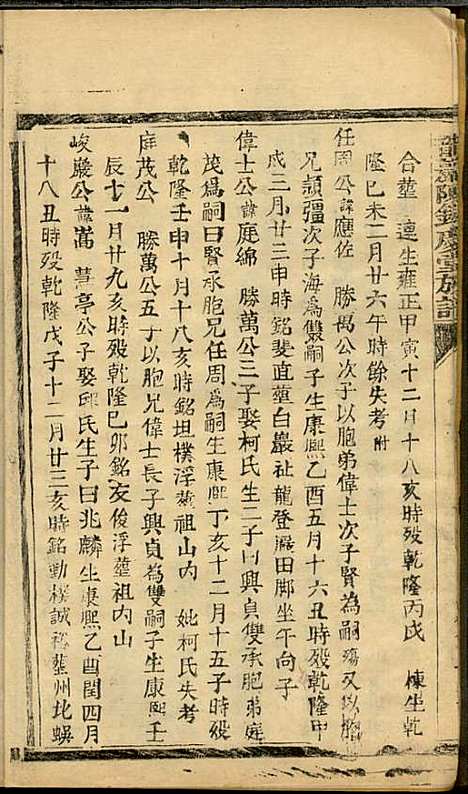 合塟 達生雍正甲寅十二月十八亥時殁乾隆丙戌 棟生乾
隆巳未二月廿六午時餘失考附
任周公諱應佐 勝萬公次子以胞弟偉士次子賢為嗣殤又以胞
兄頴疆次子海為雙嗣子生康熙乙酉五月十六丑時殁乾隆甲
戌三月廿三申時銘斐直塟白巖祉龍登漏田脚坐午向子
偉士公諱庭綿 勝萬公三子娶柯氏生二子曰興貞雙承胞弟庭
茂為嗣曰賢承胞兄任周為嗣生康熙丁亥十二月十五子時殁
乾隆壬申十月十八亥時銘坦樸浮塟祖山内 妣柯氏失考
庭茂公 勝萬公五子以胞兄偉士長子興貞為雙嗣子生康熙壬
辰十一月廿九亥時殁乾隆巳卯銘亥俊浮塟祖内山
峻巖公諱嵩 彗亭公子娶邱氏生子曰兆麟生康熙乙酉閏四月
十八丑時殁乾隆戊子十二月廿三亥時銘勤樸誠裕塟州北蜈
慶雲族譜